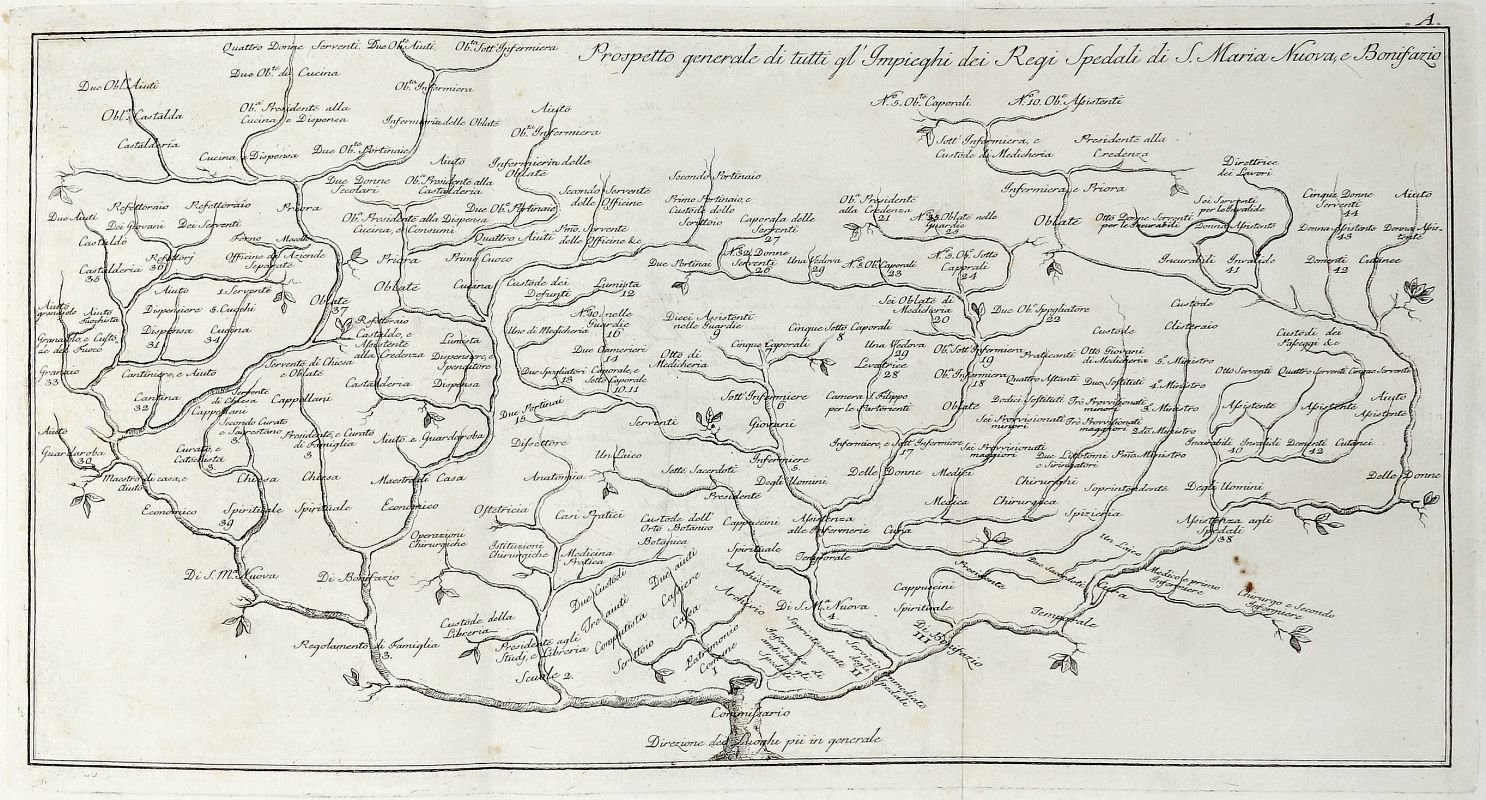 A.
Prospetto generale di tutti gl' Impieghi dei Regi Spedali di S. Maria Nuova, e Bonifazio
Quattro Donne Serventi
Due Ob.te Aiuti
Ob.ta Sott' Infermiera
Due Obl.e Aiuti
Due Ob.te di Cucina
Ob.ta Infermiera
Obl.a Castalda
Ob.ta Presidente alla
Cucina, e Dispensa
Infermeria delle Oblate
Castalderia
Cucina, e Dispensa
Due Ob.te Portinaie
Aiuto
Ob.ta Infermiera
Infermieria delle
Oblate
Aiuto
Ob.ta Presidente alla
Castalderia
Due Donne
Secolari
Priora
Due Aiuti
Castaldo
Castalderia
35
Refettoraio
Dei Giovani
Refettoraio
Dei Serventi
Refettorj
36
Forno
Officine ed Aziende
Separate
Ob.ta Presidente alla Dispensa
Cucina, e Consumi
Due Ob.te Portinaie
Quattro Aiuti
Primo Cuoco
Secondo Servente
delle Officine
P.mo Servente
delle Officine &c
Secondo Portinaio
Primo Portinaio, e
Custode dello
Scrittoio
Caporala delle
Serventi
27
N.o 32 Donne
Serventi
26
Due Portinai
Una Vedova
29
Ob.ta Presidente
alla Credenza
21
N.o 38 Oblate nelle
Guardie
25
N.o 5. Ob.te Caporali
23
N.o 5. Ob.te Sotto
Caporali
24
N.o 5. Ob.te Caporali
N.o 10. Ob.e Assistenti
Sott' Infermiera, e
Custode di Medicheria
Presidente alla
Credenza
Infermiera, e Priora
Oblate
Direttrice
dei Lavori
Otto Donne Serventi
per le Incurabili
Sei Serventi
per le Invalide
Donna Assistente
Cinque Donne
Serventi
44
Donna Assistente
43
Aiuto
Donna Assis-
tente
Incurabili
Invalide
41
Dementi
42
Cutanee
Priora
Oblate
Cucina
Custode dei
Defunti
Lumista
12
Aiuto
granaiolo
Aiuto
Fuochista
Granaiolo, e Custo-
de del Fuoco
Granaio
33
Aiuto
Dispensiere
Dispensa
31
1. Servente
5. Cuochi
Cucina
34
Oblate
37
Refettoraio
Castaldo, e
Assistente
alla Credenza
Castalderia
Lumista
Dispensiere, e
Spenditore
Dispensa
Uno di Medicheria
N.o 40. nelle
Guardie
16
Due Camerieri
14
Due Spogliatori
13
Caporale, e
Sotto Caporale
10.11
Due Portinai
15
Dieci Assistenti
nelle Guardie
9
Cinque Caporali
7
Cinque Sotto Caporali
8
Otto di
Medicheria
Sott' Infermiere
6
Serventi
Giovani
Infermiere
5.
Degli Uomini
Sei Oblate di
Medicheria
20
Due Ob.e Spogliatore
22
Una Vedova
29
Levatrice
28
Camera S. Filippo
per le Partorienti
Ob.ta Sott' Infermiera
19
Ob.ta Infermiera
18
Oblate
Infermiere, e Sott' Infermiere
17
Delle Donne
Praticanti
Quattro Astanti
Dodici Sostituti
Sei Provvisionati
minori
Sei Provvisionati
maggiori
Medici
Medica
Custode
Otto Giovani
di Medicheria
Due Sostituti
Tre Provvisionati
minori
Tre Provvisionati
maggiori
Due Litotomi
e Siringatori
Chirurghi
Chirurgica
Custode
Clisteraio
5.o Ministro
4.o Ministro
3.o Ministro
2do Ministro
P.mo Ministro
Soprintendente
Spezieria
Custodi dei
Passeggi &c
Otto Serventi
Quattro Serventi
Cinque Serventi
Assistente
Assistente
Aiuto
Assistente
Incurabili
40
Invalidi
Dementi
42
Cutanei
Degli Uomini
Delle Donne
Assistenza agli
Spedali
38
Cantiniere, e Aiuto
Cantina
32
Servente
di Chiesa
Cappellani
Serventi di Chiesa
e Oblate
Cappellani
Secondo Curato
e Sagrestano
3.
Presidente, e Curato
di Famiglia
3
Aiuto
Guardaroba
30
Maestro di casa, e
Aiuto
Curato, e
Catechista
3.
Chiesa
Chiesa
Aiuto, e Guardaroba
Maestro di Casa
Economico
Spirituale
39
Spirituale
Economico
Di S. M.a Nuova
Di Bonifazio
Regolamento di Famiglia
3.
Disettore
Anatomia
Ostetricia
Casi Pratici
Operazioni
Chirurgiche
Istituzioni
Chirurgiche
Medicina
Pratica
Custode dell'
Orto Botanico
Botanica
Custode della
Libreria
Presidente agli
Studj, e Libreria
Scuole 2.
Un Laico
Sette Sacerdoti
Presidente
Cappuccini
Spirituale
Assistenza
alle Infermerie
Cura
Temporale
Due Custodi
Tre aiuti
Computista
Scrittoio
Due aiuti
Cassiere
Cassa
Archivista
Archivio
Patrimonio
Comune
1
Di S. M.a Nuova
4.
Soprintendente
Infermo di
ambidue gli
Spedali
Servizio
degli
II
Immediato
Spedali
Cappuccini
Spirituale
Di Bonifazio
III
Presidente
Due Sacerdoti
Un Laico
Temporale
Cura
Medico, e primo
Infermiere
Chirurgo e Secondo
Infermiere
Commissario
Direzione dei Luoghi pii in generale